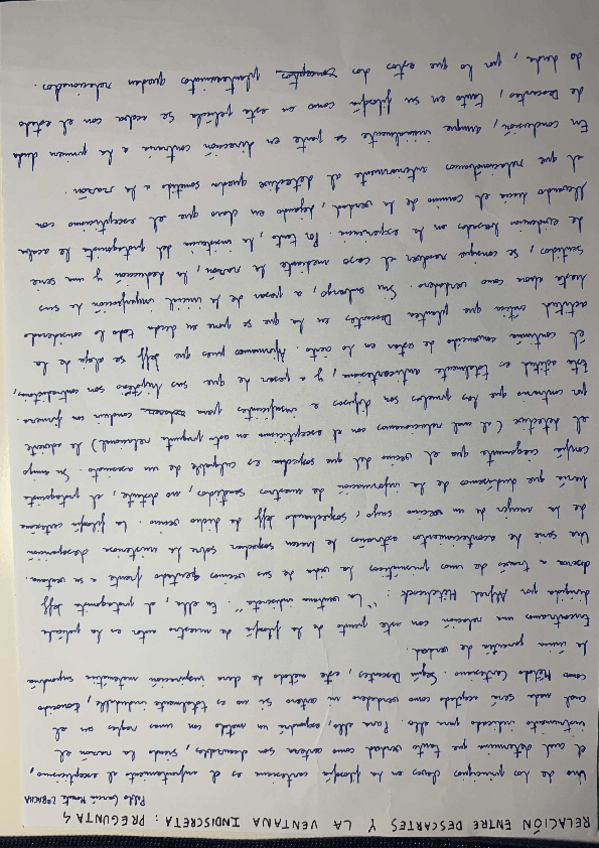 RELACIÓN ENTRE DESCARTES Y LA VENTANA INDISCRETA: PREGUNTA 4
Pablo García 2ºBACHA
Uno de los principios claves en la filosofía cartesiana es el enfrentamiento al escepticismo,
el cual determina que tanto verdad como certeza son alcanzables, siendo la razón el
instrumento indicado para ello. Para ello, expondrá un método con unas reglas en el
cual nada será aceptado como verdadero ni certero si no es totalmente indudable, conocido
como Método Cartesiano. Según Descartes, este método de clara inspiración matemática supondría
la única garantía de verdad.
Encontramos una relación con este punto de la filosofía de nuestro autor en la película
dirigida por Alfred Hitchcock: "La ventana indiscreta". En ella, el protagonista Jeff
observa a través de unos prismáticos la vida de sus vecinos apostado frente a su ventana.
Una serie de acontecimientos extraños le hacen sospechar sobre la misteriosa desaparición
de la mujer de un vecino suyo, sospechando Jeff de dicho vecino. La filosofía cartesiana
haría que dudásemos de la información de nuestros sentidos, no obstante, el protagonista
confía ciegamente que el vecino del que sospecha es culpable de un asesinato. Su amigo
el detective (el cual relacionamos con el escepticismo en esta pregunta relacional) le advierte
por contrario que las pruebas son difusas e insuficientes para conducir en firme.
Esta actitud es totalmente anticartesiana, y a pesar de que sus hipótesis son contradichas,
él continúa convencido de estar en lo cierto. Afirmamos pues que Jeff se aleja de la
actitud crítica que plantea Descartes en la que se pone en duda todo lo considerado
hasta ahora como verdadero. Sin embargo, a pesar de la inicial imperfección de sus
sentidos, se consigue resolver el caso mediante la razón, la deducción y una serie
de evidencias basadas en la experiencia. Por tanto, la insistencia del protagonista le acaba
llevando hacia el camino de la verdad, dejando en claro que el escepticismo con
el que relacionábamos anteriormente al detective queda sometido a la razón.
En conclusión, aunque inicialmente se parte en dirección contraria a la primera duda
de Descartes, tanto en su filosofía como en esta película se acaba con el estado
de duda, por lo que estos dos planteamientos quedan relacionados.